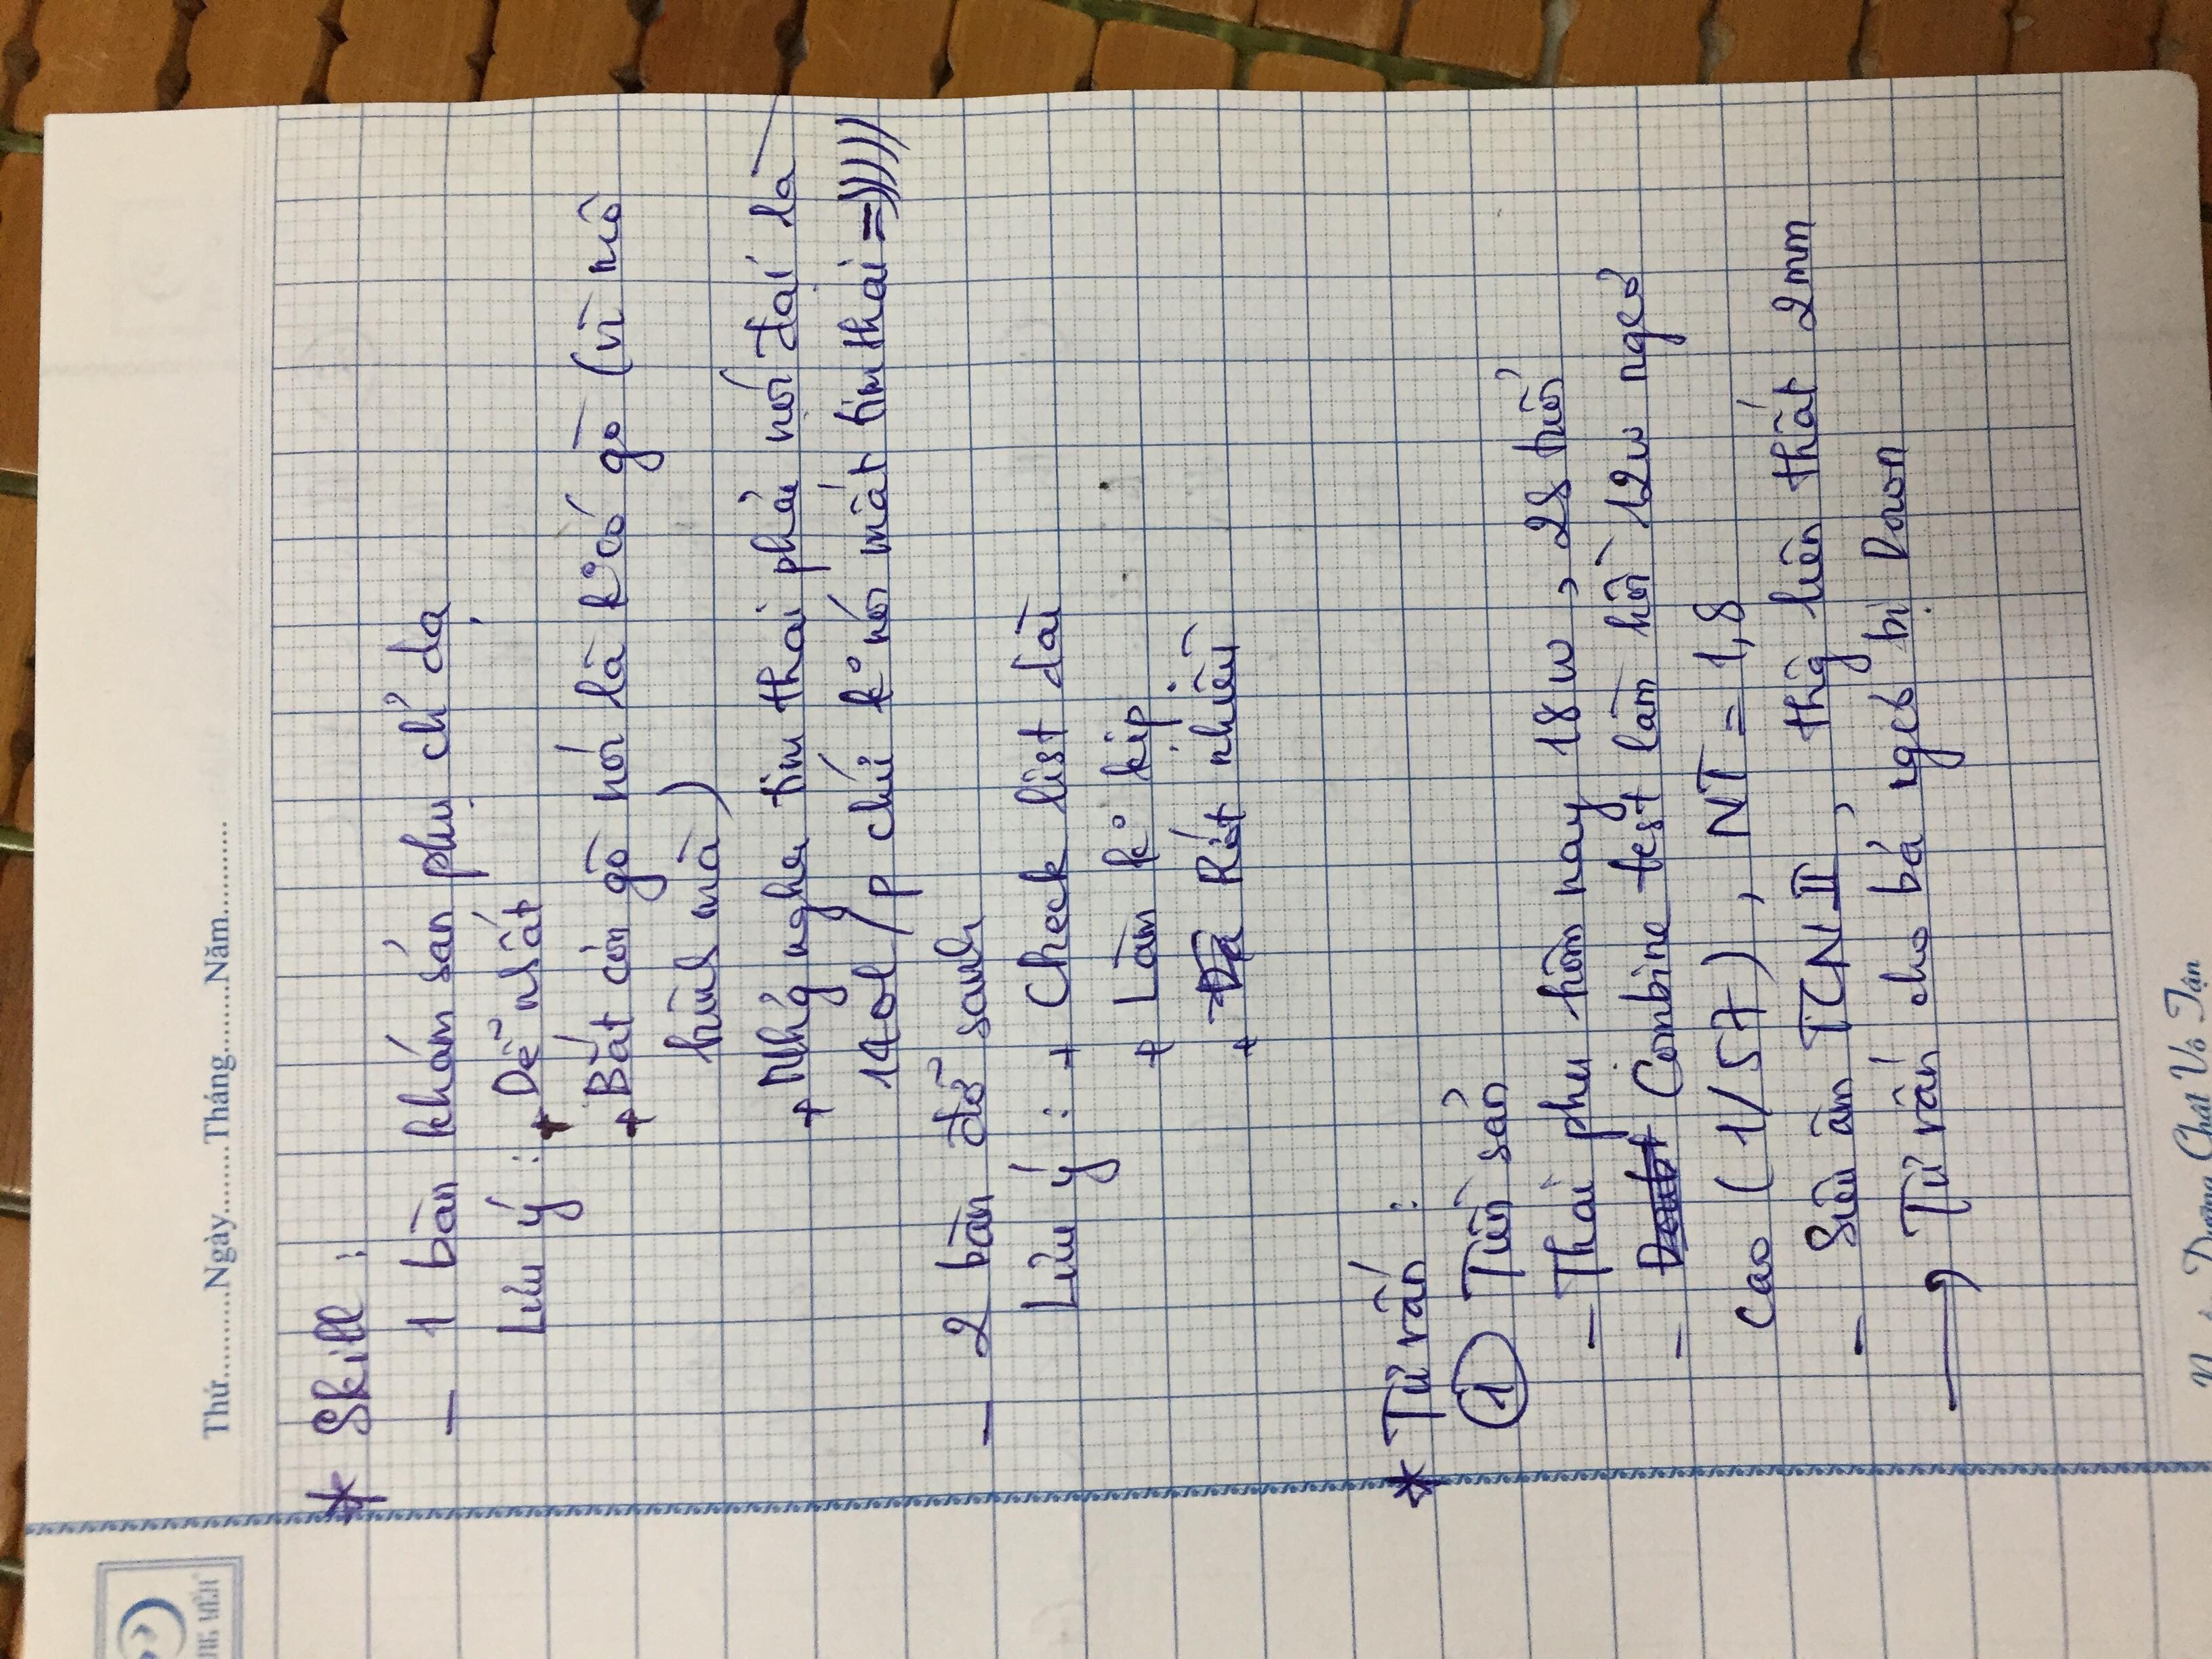 Thứ..........Ngày........Tháng........Năm...........
* Skill :
- 1 bàn khám sản phụ chỉ dạ
Lưu ý : + Dễ nhất
+ Bắt cơn gò nói là k° có gò (vì mô
hình mà)
+ Nhớ nghe tim thai phải nói đại là
140l/p chứ k° nói mất tim thai =)))))
- 2 bàn đỡ sanh
Lưu ý : + Check list dài
+ Làm k° kịp
+ Rớt nhiều
* Tư vấn :
① Tiền sản
- Thai phụ hôm nay 18w, 28 tuổi
- Combine test làm hồi 12w ngcơ
cao (1/57), NT = 1,8
- Siêu âm TCN II, thg liên thất 2mm
→ Tư vấn cho bả ngcơ bị Down
Dưỡng Chất Vô Tận